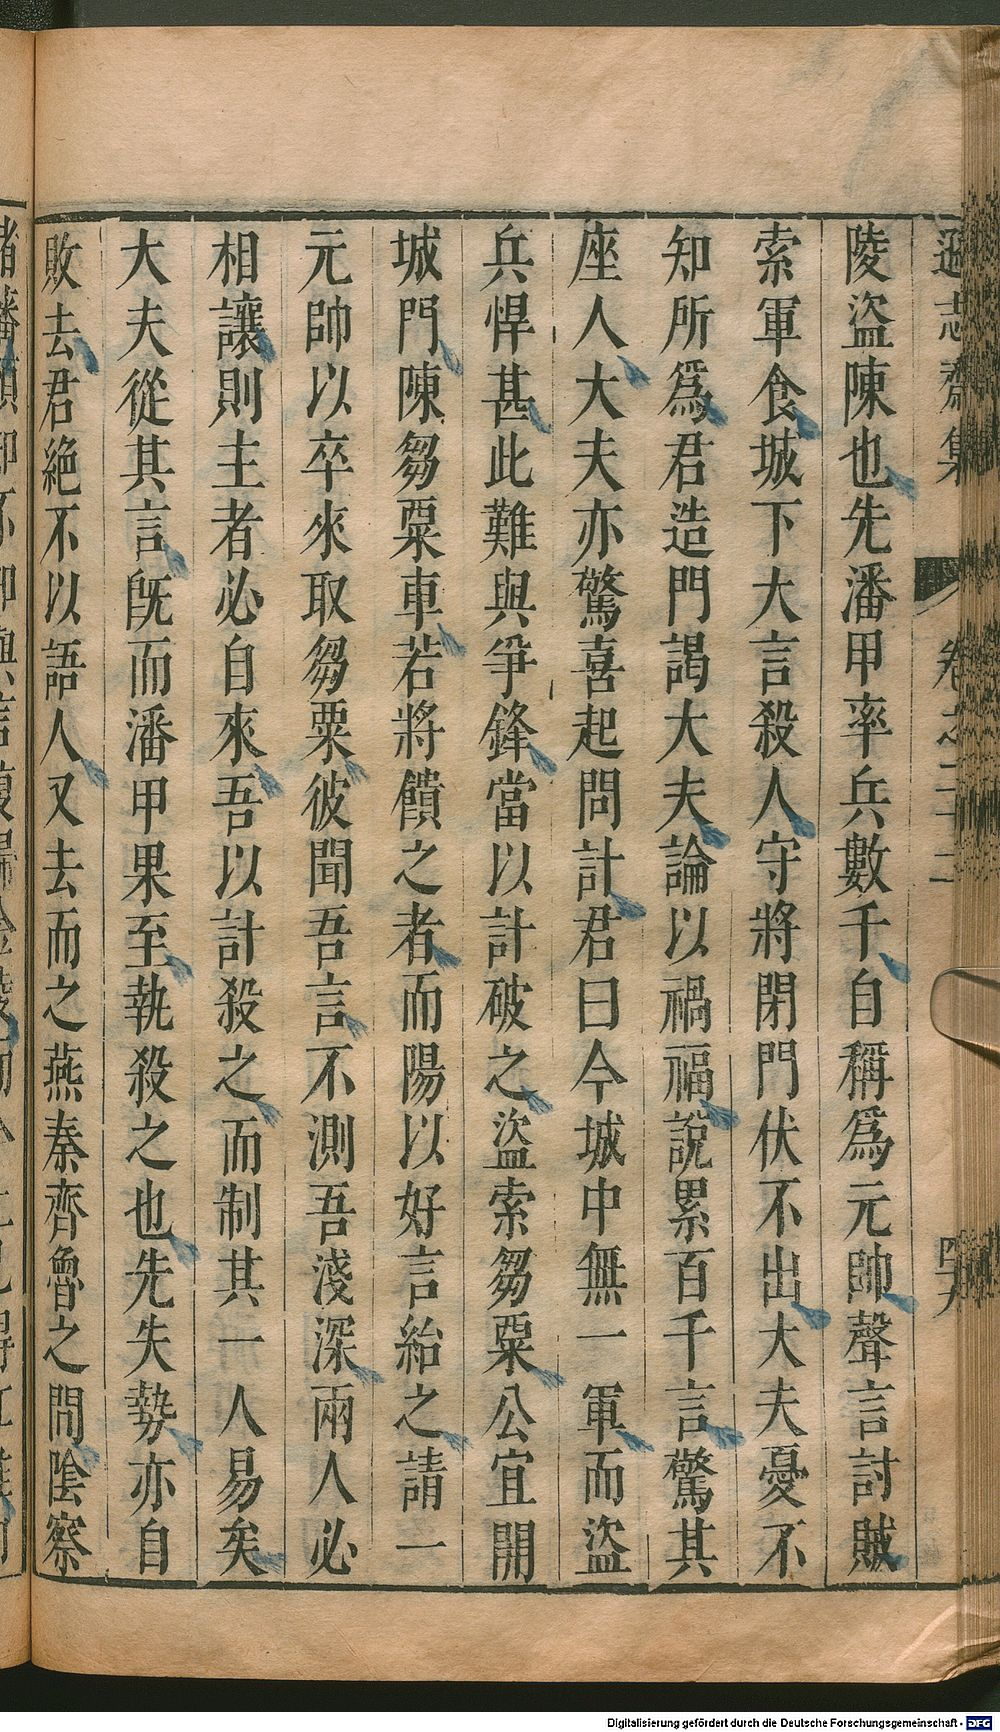 遜志齋集 卷之二十二
陵盜陳也先潘甲率兵數千自稱爲元帥聲言討賊
索軍食城下大言殺人守將閉門伏不出大夫憂不
知所爲君造門謁大夫論以禍福說累百千言驚其
座人大夫亦驚喜起問計君曰今城中無一軍而盜
兵悍甚此難與爭鋒當以計破之盜索芻粟公宜開
城門陳芻粟車若將饋之者而陽以好言紿之請一
元帥以卒來取芻粟彼聞吾言不測吾淺深兩人必
相讓則主者必自來吾以計殺之而制其一人易矣
大夫從其言旣而潘甲果至執殺之也先失勢亦自
敗去君絕不以語人又去而之燕秦齊魯之間陰察
Digitalisierung gefördert durch die Deutsche Forschungsgemeinschaft - DFG